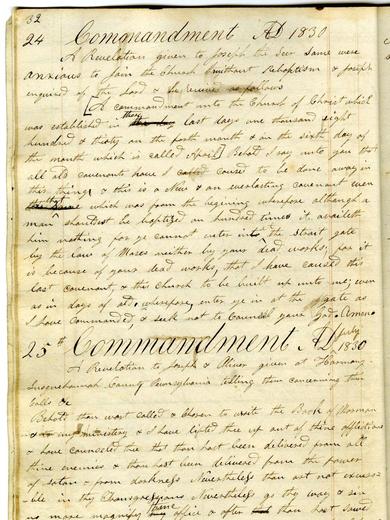 32
24 Commandment AD 1830
A Revelation given to Joseph the Seer Some were
anxious to join the Church without Rebaptism & Joseph
enquired of the Lord & he received as follows
A commandment unto the Church of Christ which
was established in these last days one thousand eight
hundred & thirty on the forth month & on the sixth day of
the month which is called April Behold I say unto you that
all old covenants have I caused to be done away in
this thing & this is a New & an everlasting covenant even
that which was from the begining wherefore although a
man shouldest be baptized an hundred times it availeth
him nothing for ye cannot enter into the strait gate
by the law of Moses neither by your dead works for it
is because of your dead works, that I have caused this
last covenant, & this Church to be built up unto me; even
as in days of old, wherefore enter ye in at the gate as
I have commanded, & seek not to Counsel your God Amen
25th Commandment AD July 1830
A Revelation to Joseph & Oliver given at Harmony
Susquehannah County Pennsylvania telling them concerning their
Calls &c
Behold thou wast called & chosen to write the Book of Mormon
& my ministery & I have lifted thee up out of thine afflictions
& have counseled thee that thou hast been delivered from all
thine enemies & thou hast been delivered from the power
of satan & from darkness Nevertheless thou art not excusa-
ble in thy transgressions Nevertheless go thy way & sin
no more magnify thine office & after thou hast sowed